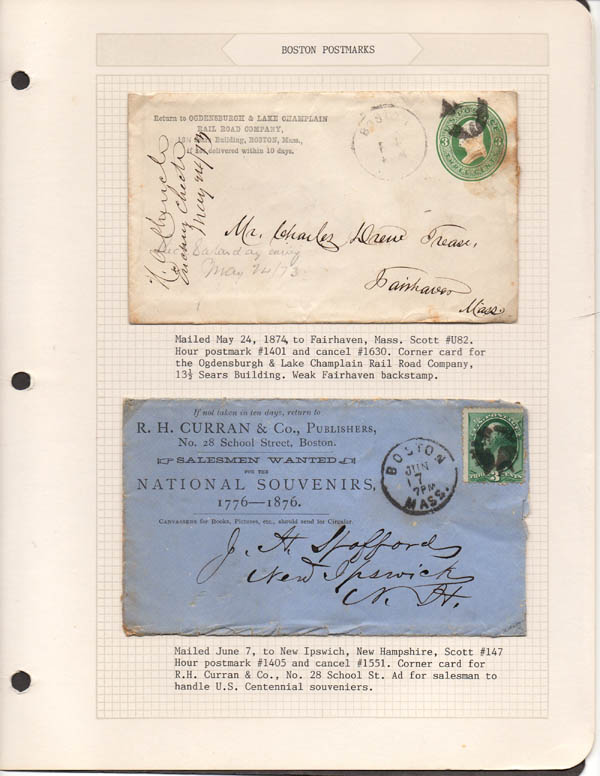 BOSTON POSTMARKS
Return to OGDENSBURGH & LAKE CHAMPLAIN
RAIL ROAD COMPANY,
13½ Sears Building, BOSTON, Mass.,
if not delivered within 10 days.
BOSTON
3
3
May 24/73
Enclosing Check
Mr. Charles Drew Treas.,
Rec. Saturday
May 24/73
Fairhaven
Mass.
Mailed May 24, 1874, to Fairhaven, Mass. Scott #U82.
Hour postmark #1401 and cancel #1630. Corner card for
the Ogdensburgh & Lake Champlain Rail Road Company,
13½ Sears Building. Weak Fairhaven backstamp.
If not taken in ten days, return to
R. H. CURRAN & Co., PUBLISHERS,
No. 28 School Street, Boston.
SALESMEN WANTED
FOR THE
NATIONAL SOUVENIRS,
1776—1876.
CANVASSERS for Books, Pictures, etc., should send for Circular.
BOSTON
JUN
7PM
MASS.
3 CENTS
J. A. Spofford
New Ipswich
N. H.
Mailed June 7, to New Ipwich, New Hampshire, Scott #147
Hour postmark #1405 and cancel #1551. Corner card for
R.H. Curran & Co., No. 28 School St. Ad for salesman to
handle U.S. Centennial souveniers.